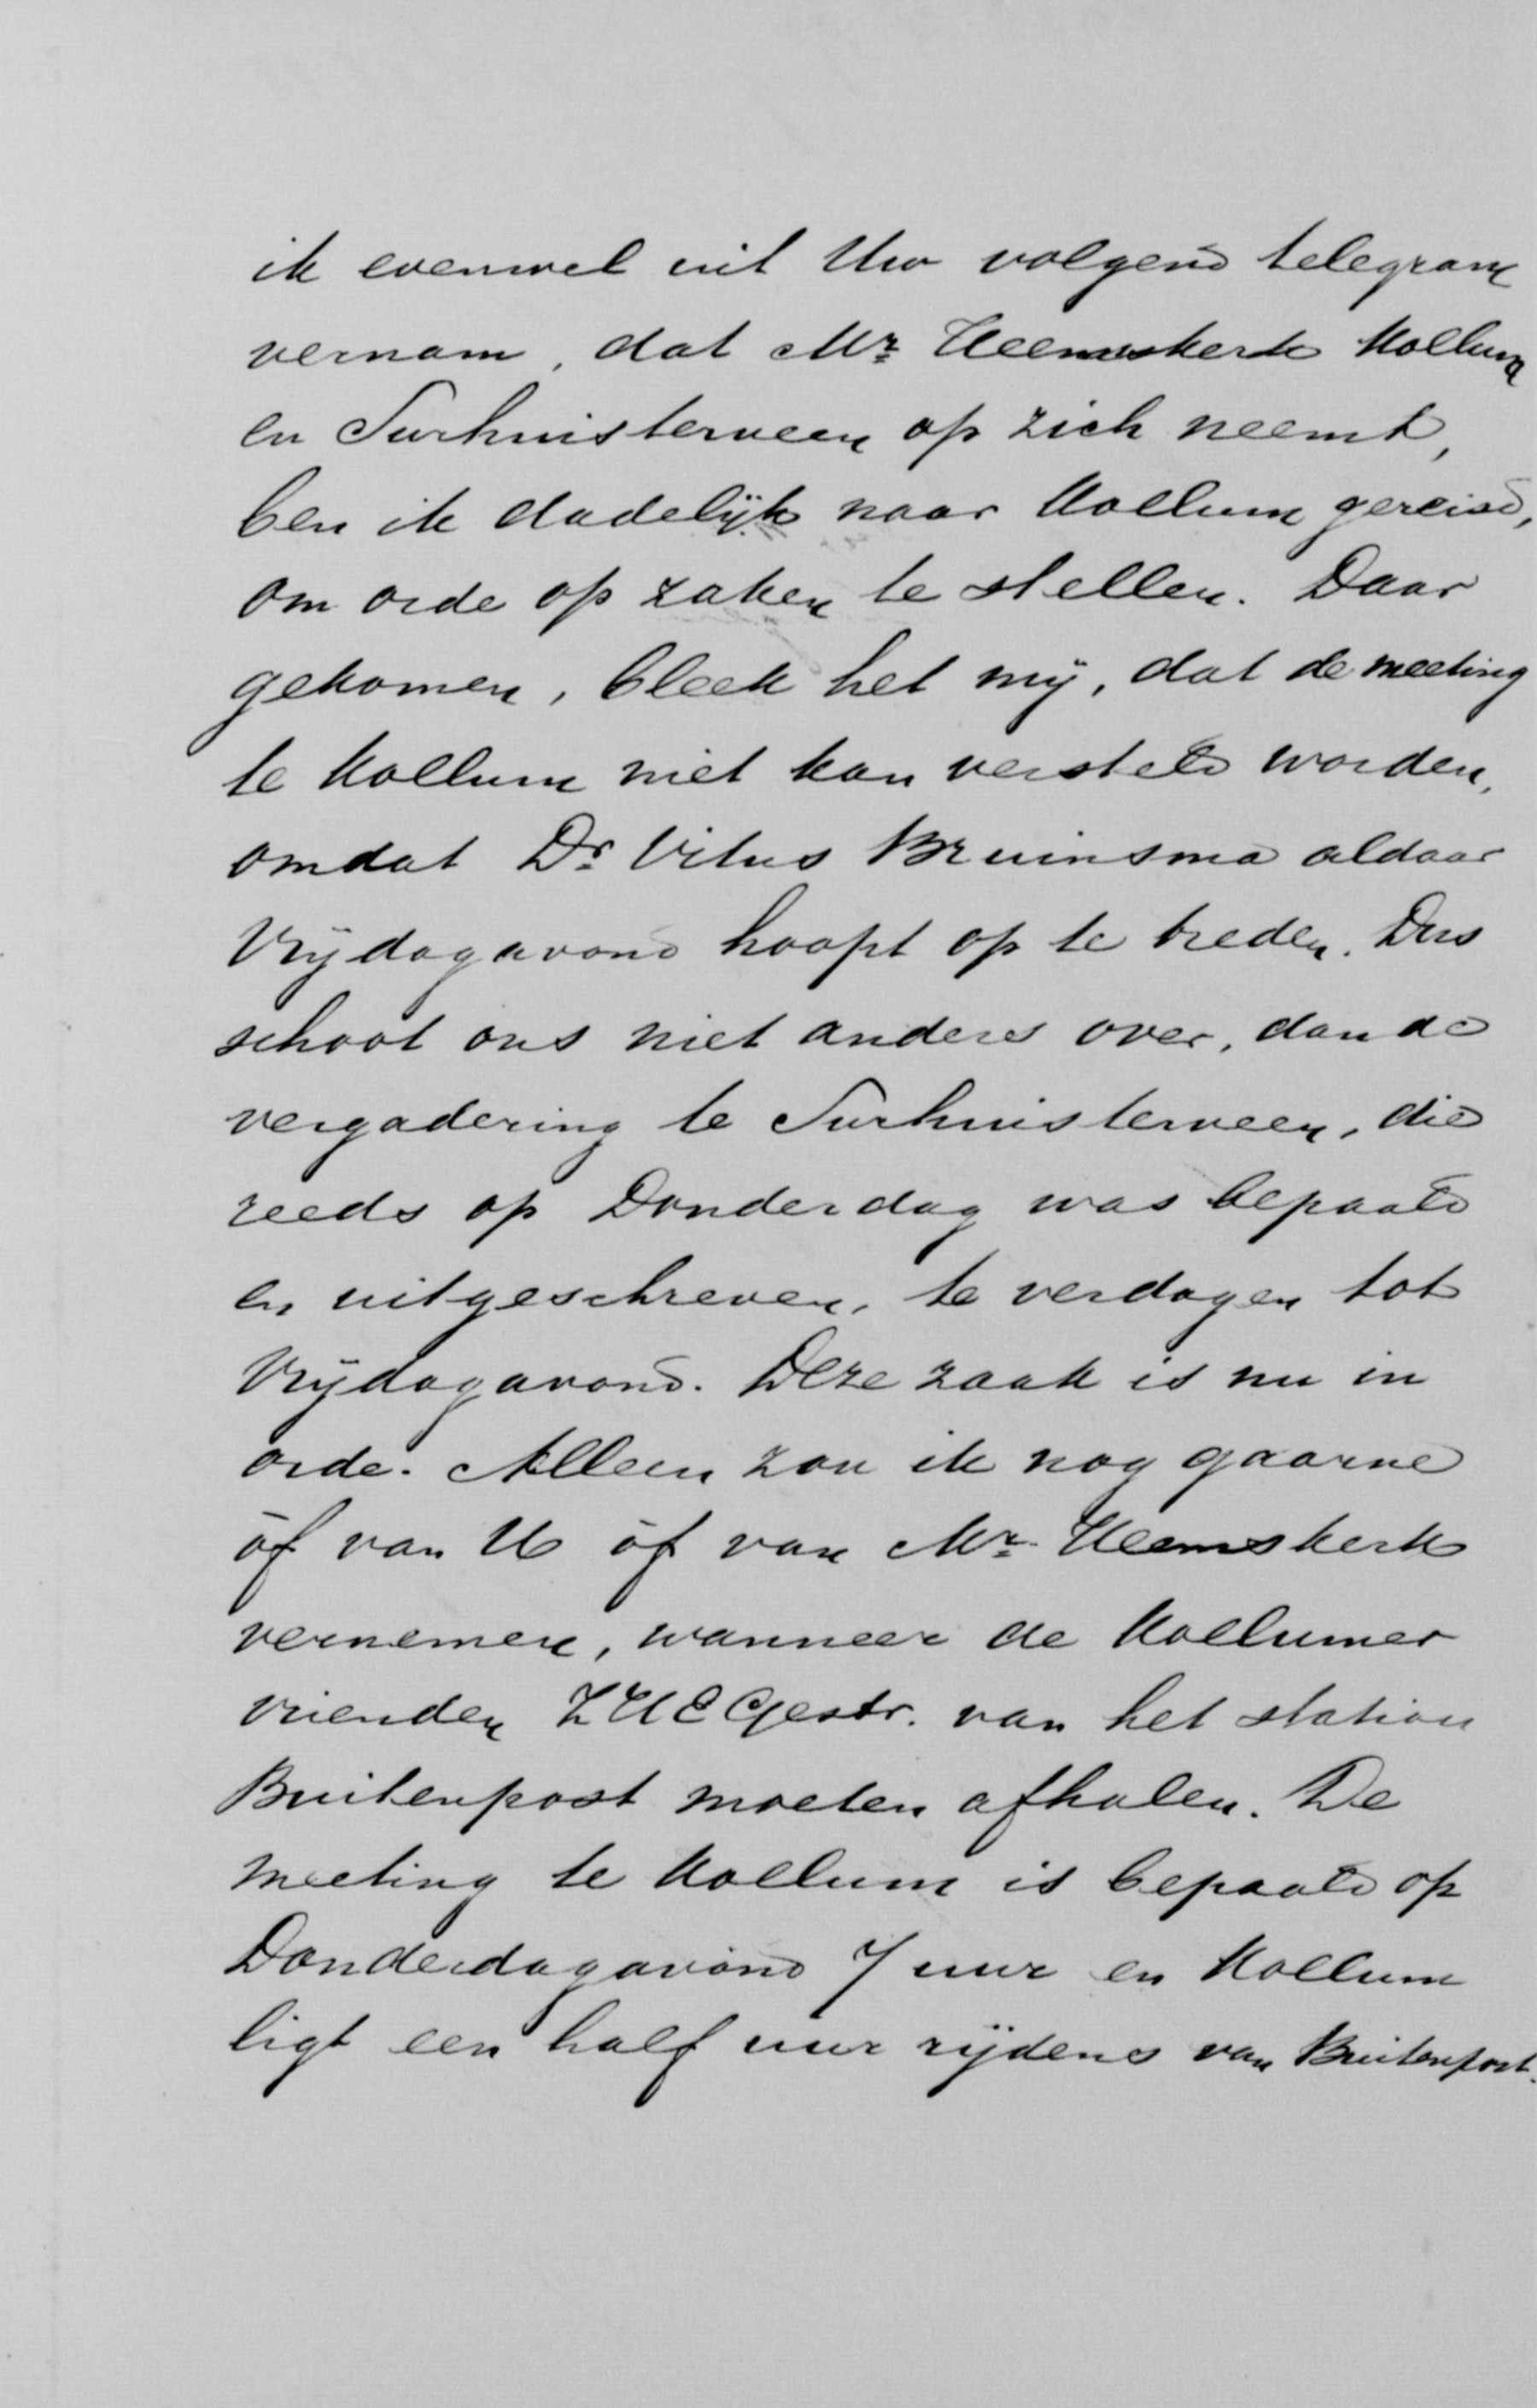 ik evenwel uit Uw volgend telegram
vernam, dat Mr Heemskerk Kollum
en Surhuisterveen op zich neemt,
ben ik dadelijk naar Kollum gereisd,
om orde op zaken te stellen. Daar
gekomen, bleek het mij, dat de meeting
te Kollum niet kan versteld worden,
omdat Dr Vitus Bruinsma aldaar
Vrijdagavond hoopt op te treden. Dus
schoot ons niet anders over, dan de
vergadering te Surhuisterveen, die
reeds op Donderdag was bepaald
en uitgeschreven, te verdagen tot
Vrijdagavond. Deze zaak is nu in
orde. Alleen zou ik nog gaarne
òf van U òf van Mr Heemskerk
vernemen, wanneer de Kollumer
vrienden ZHEGestr. van het station
Buitenpost moeten afhalen. De
meeting te Kollum is bepaald op
Donderdagavond 7 uur en Kollum
ligt een half uur rijdens van Buitenpost.